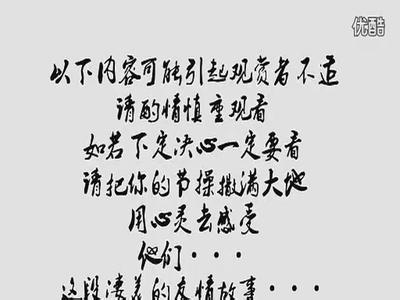 优酷
以下内容可能引起观赏者不适
请酌情慎重观看
如若下定决心一定要看
请把你的节操撒满大地
用心灵去感受
他们···
这段凄美的友情故事···